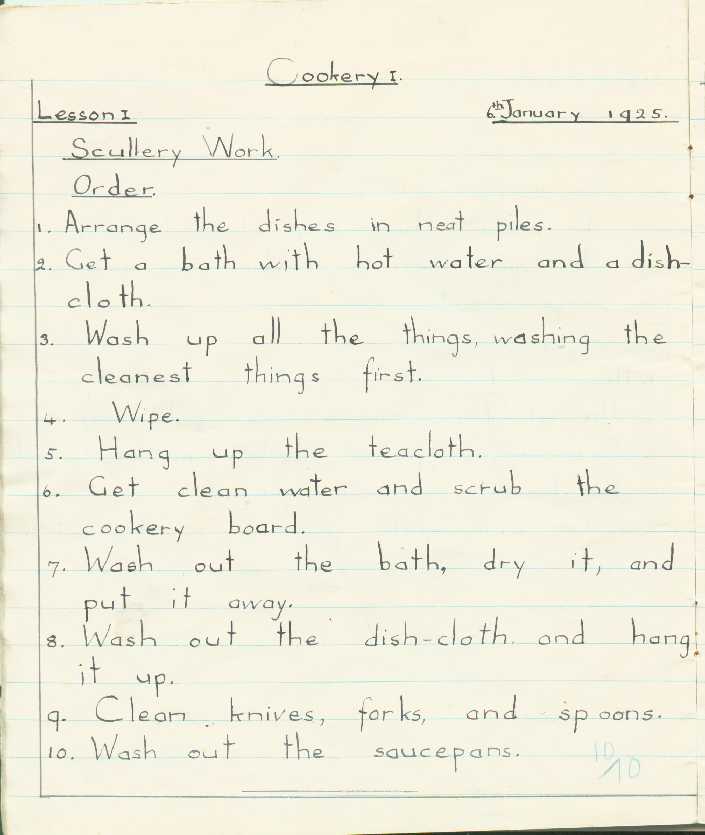 Cookery I.
Lesson I
6th January 1925.
Scullery Work.
Order.
1. Arrange the dishes in neat piles.
2. Get a bath with hot water and a dish-
cloth.
3. Wash up all the things, washing the
cleanest things first.
4. Wipe.
5. Hang up the teacloth.
6. Get clean water and scrub the
cookery board.
7. Wash out the bath, dry it, and
put it away.
8. Wash out the dish-cloth and hang
it up.
9. Clean knives, forks, and spoons.
10. Wash out the saucepans.
10/10